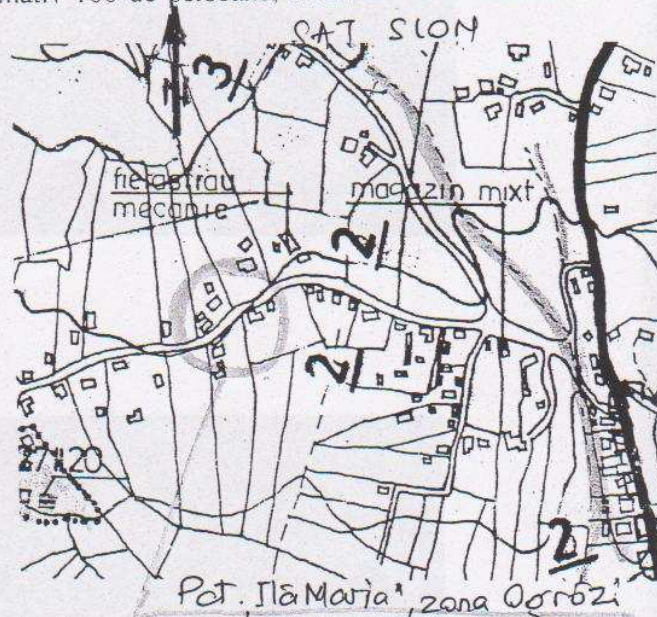 SAT SLON
3
fierăstrău
mecanic
magazin mixt
2
2
20
2
Pct. Ilă Maria" zona Ogrăzi